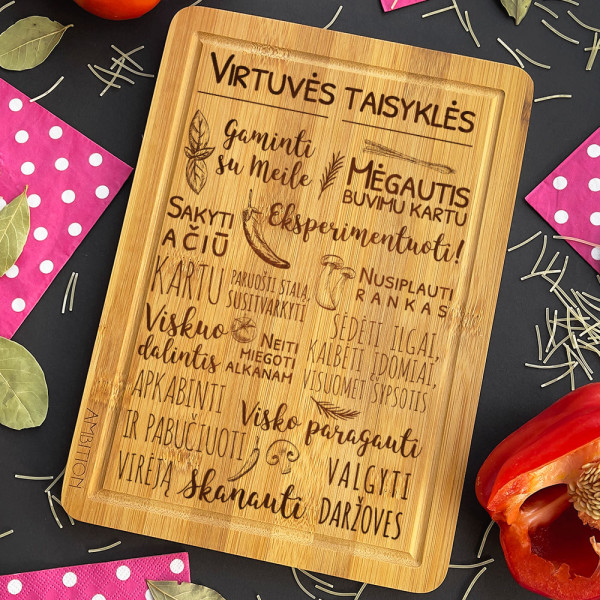 VIRTUVĖS TAISYKLĖS
Gaminti
su Meile
MĖGAUTIS
BUVIMU KARTU
SAKYTI
AČIŪ
Eksperimentuoti!
KARTU
PARUOŠTI STALĄ,
SUSITVARKYTI
NUSIPLAUTI
RANKAS
Viskuo
dalintis
NEITI
MIEGOTI
ALKANAM
SĖDĖTI ILGAI,
KALBĖTI ĮDOMIAI,
VISUOMET ŠYPSOTIS
APKABINTI
IR PABUČIUOTI
VIRĖJĄ
Visko paragauti
Skanauti
VALGYTI
DARŽOVES
AMBITION